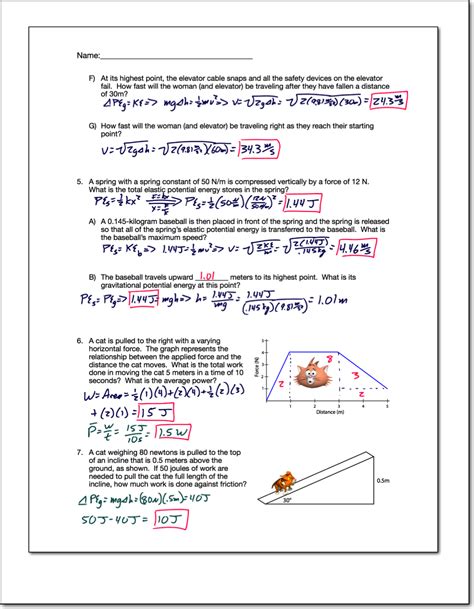 Name:
F) At its highest point, the elevator cable snaps and all the safety devices on the elevator
fail. How fast will the woman (and elevator) be traveling after they have fallen a distance
of 30m?
ΔPEg = KE => mgΔh = ½mv² => v = √2gΔh = √2(9.81 m/s²)(30m) = 24.3 m/s
G) How fast will the woman (and elevator) be traveling right as they reach their starting
point?
v = √2gΔh = √2(9.81 m/s²)(60m) = 34.3 m/s
5. A spring with a spring constant of 50 N/m is compressed vertically by a force of 12 N.
What is the total elastic potential energy stores in the spring?
PEs = ½kx² => PEs = ½(50 N/m)(12N / 50 N/m)² = 1.44 J
A) A 0.145-kilogram baseball is then placed in front of the spring and the spring is released
so that all of the spring's elastic potential energy is transferred to the baseball. What is
the baseball's maximum speed?
B) The baseball travels upward 1.01 meters to its highest point. What is its
gravitational potential energy at this point?
PEs = PEg = 1.44 J = mgh => h = 1.44 J / mg = 1.44 J / (.145 kg)(9.81 m/s²) = 1.01 m
6. A cat is pulled to the right with a varying
horizontal force. The graph represents the
relationship between the applied force and the
distance the cat moves. What is the total work
done in moving the cat 5 meters in a time of 10
seconds? What is the average power?
W = Area = ½(1)(4) + (2)(4) + ½(2)(3)
+ (2)(1) = 15 J
P̄ = W/t = 15J/10s = 1.5 W
Force (N)
5
4
3
2
1
2
8
3
2
1 2 3 4 5
Distance (m)
7. A cat weighing 80 newtons is pulled to the top
of an incline that is 0.5 meters above the
ground, as shown. If 50 joules of work are
needed to pull the cat the full length of the
incline, how much work is done against friction?
ΔPEg = mgΔh = (80N)(.5m) = 40J
50J - 40J = 10J
30°
0.5m